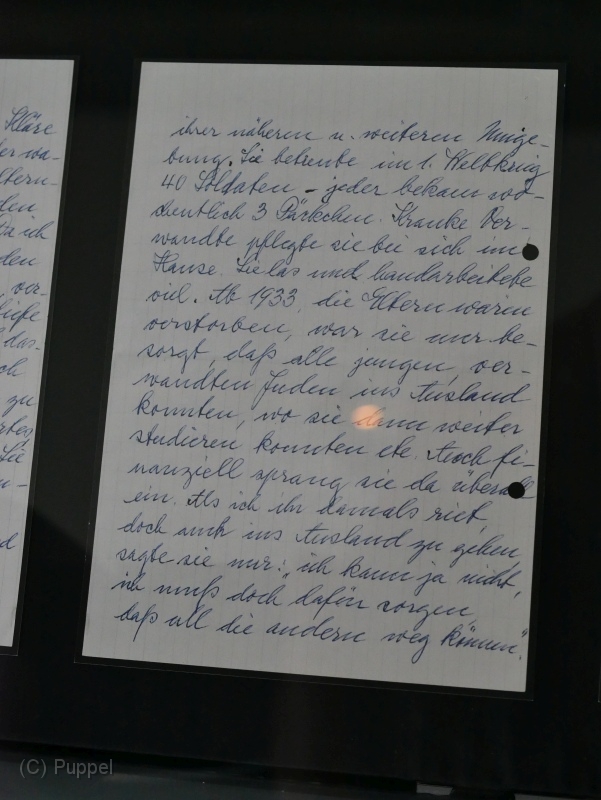 Kläre
er wa-
ltern-
den
da ich
den
ver-
das-
ch
zu
Sie
d
ihrer näheren u. weiteren Umge-
bung. Sie betreute im 1. Weltkrieg
40 Soldaten – jeder bekam wö-
chentlich 3 Päckchen. Kranke Ver-
wandte pflegte sie bei sich im
Hause. Sie las und handarbeitete
viel. Ab 1933, die Eltern waren
verstorben, war sie nur be-
sorgt, daß alle jungen, ver-
wandten Juden ins Ausland
konnten, wo sie dann weiter
studieren konnten etc. Auch fi-
nanziell sprang sie da überall
ein. Als ich ihr damals riet,
doch auch ins Ausland zu gehen
sagte sie mir: „ich kann ja nicht,
ich muß doch dafür sorgen,
daß all die andern weg können."
(C) Puppel